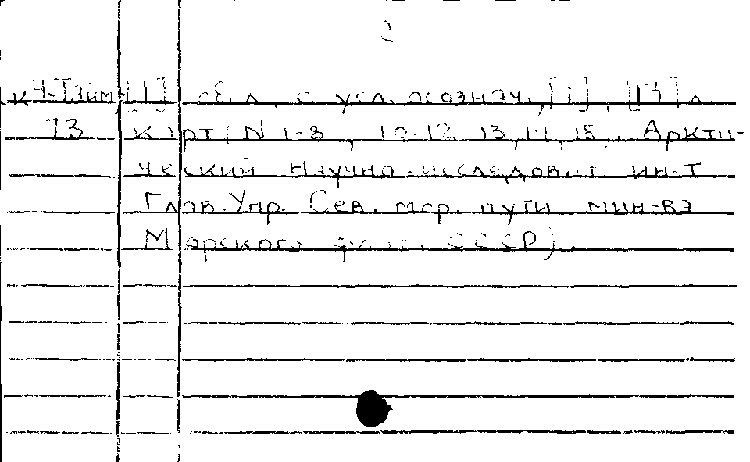 2
К4-Тайм [1] об.л. с усл. обознач. [1], [13] л
13 карт (N 1-8, 10-12, 13, 14, 15, Аркти-
ческий Научно-исследоват. ин-т
Глав. Упр. Сев. мор. пути мин-ва
Морского флота СССР).